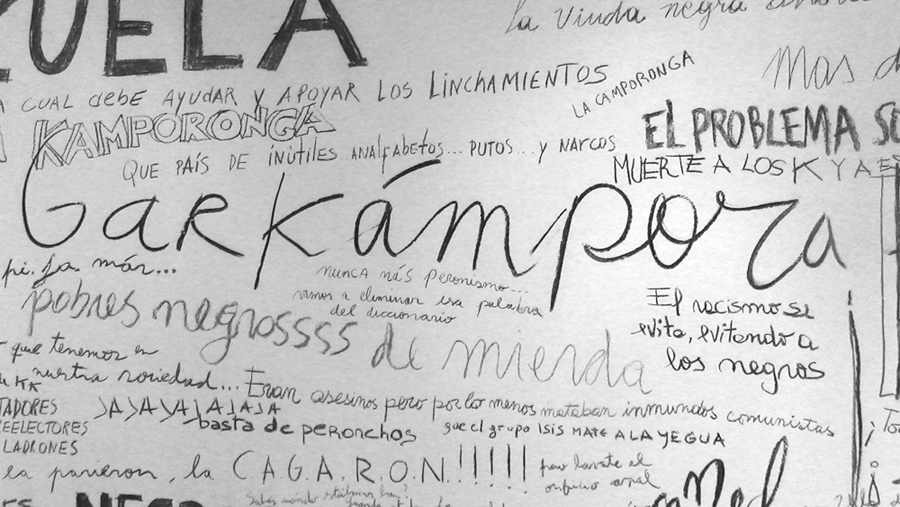 ZUELA
La Viuda negra
A CUAL debe AYUDAR Y APOYAR LOS LINCHAMIENTOS
LA CAMPORONGA
Mas d
KAMPORONGA
EL PROBLEMA SO
QUE PAÍS DE INÚTILES ANALFABETOS... PUTOS... Y NARCOS
MUERTE A LOS K Y A
Garkámpora
nunca más Peronismo...
vamos a eliminar esa palabra
del diccionario
pobres negrossss de mierda
El racismo se
evita, evitando a
los negros
que tenemos en
nuestra sociedad...
KK
Eran asesinos pero por lo menos mataban inmundos comunistas
TADORES
JAJAJAJAJAJAJA
REELECTORES
basta de peronchos
que el grupo ISIS MATE A LA YEGUA
LADRONES
la parieron, la C.A.G.A.R.O.N.!!!!!!
pero lavate el
orificio anal